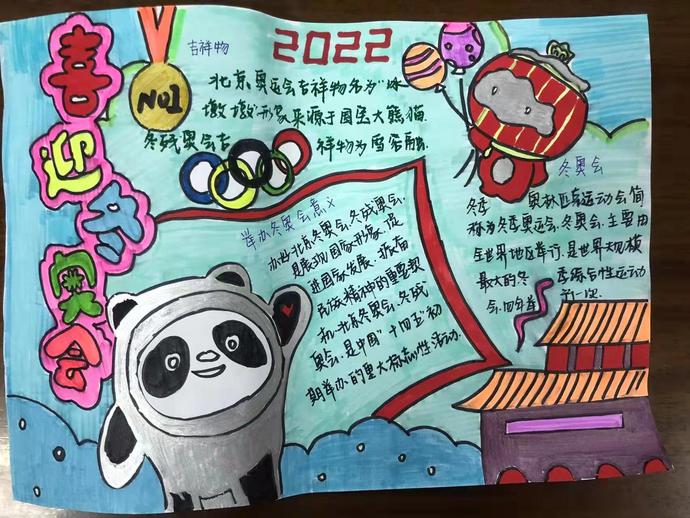 喜迎冬奥会
NO1
吉祥物
2022
北京奥运会吉祥物名为"冰
墩墩"形象来源于国宝大熊猫
冬残奥会吉祥物为雪容融
举办冬奥会意义
办好北京冬奥会、冬残奥会、
是展现国家形象、促
进国家发展、振奋
民族精神的重要契
机、北京冬奥会、冬残
奥会、是中国"十四五"初
期举办的重大标志性活动.
冬奥会
冬季奥林匹克运动会简
称为冬季奥运会、冬奥会.主要由
全世界地区举行、是世界规模
最大的冬季综合性运动
会、四年举办一次.